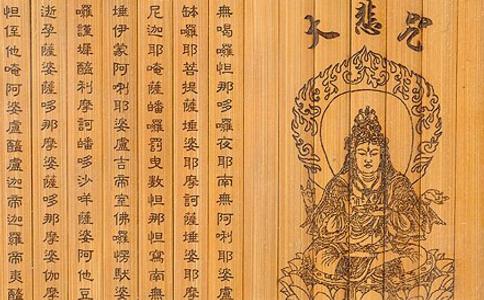 大悲咒
無喝囉怛那哆囉夜耶南無阿唎耶婆盧
缽囉耶菩提薩埵婆耶摩訶薩埵婆耶摩
尼迦耶唵薩皤囉罰曳數怛那怛寫南無
埵伊蒙阿唎耶婆盧吉帝室佛囉楞馱婆
囉謹墀醯利摩訶皤哆沙咩薩婆阿他豆
逝孕薩婆薩哆那摩婆薩哆那摩婆伽摩
怛侄他唵阿婆盧醯盧迦帝迦羅帝夷醯